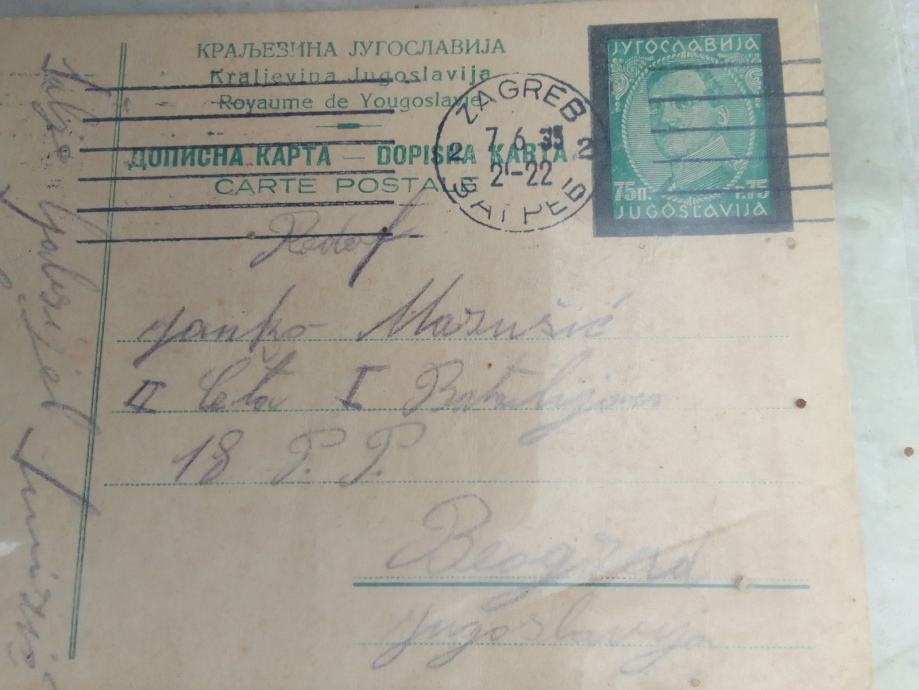 КРАЉЕВИНА ЈУГОСЛАВИЈА
Kraljevina Jugoslavija
Royaume de Yougoslavie
ДОПИСНА КАРТА — DOPISNA KARTA
CARTE POSTALE
ZAGREB 2
7. 6. 35
21-22
ЗАГРЕБ 2
ЈУГОСЛАВИЈА
75п. p.75
JUGOSLAVIJA
Janko
II Četa I Bataljon
18 P. P.
Beograd
Jugoslavija